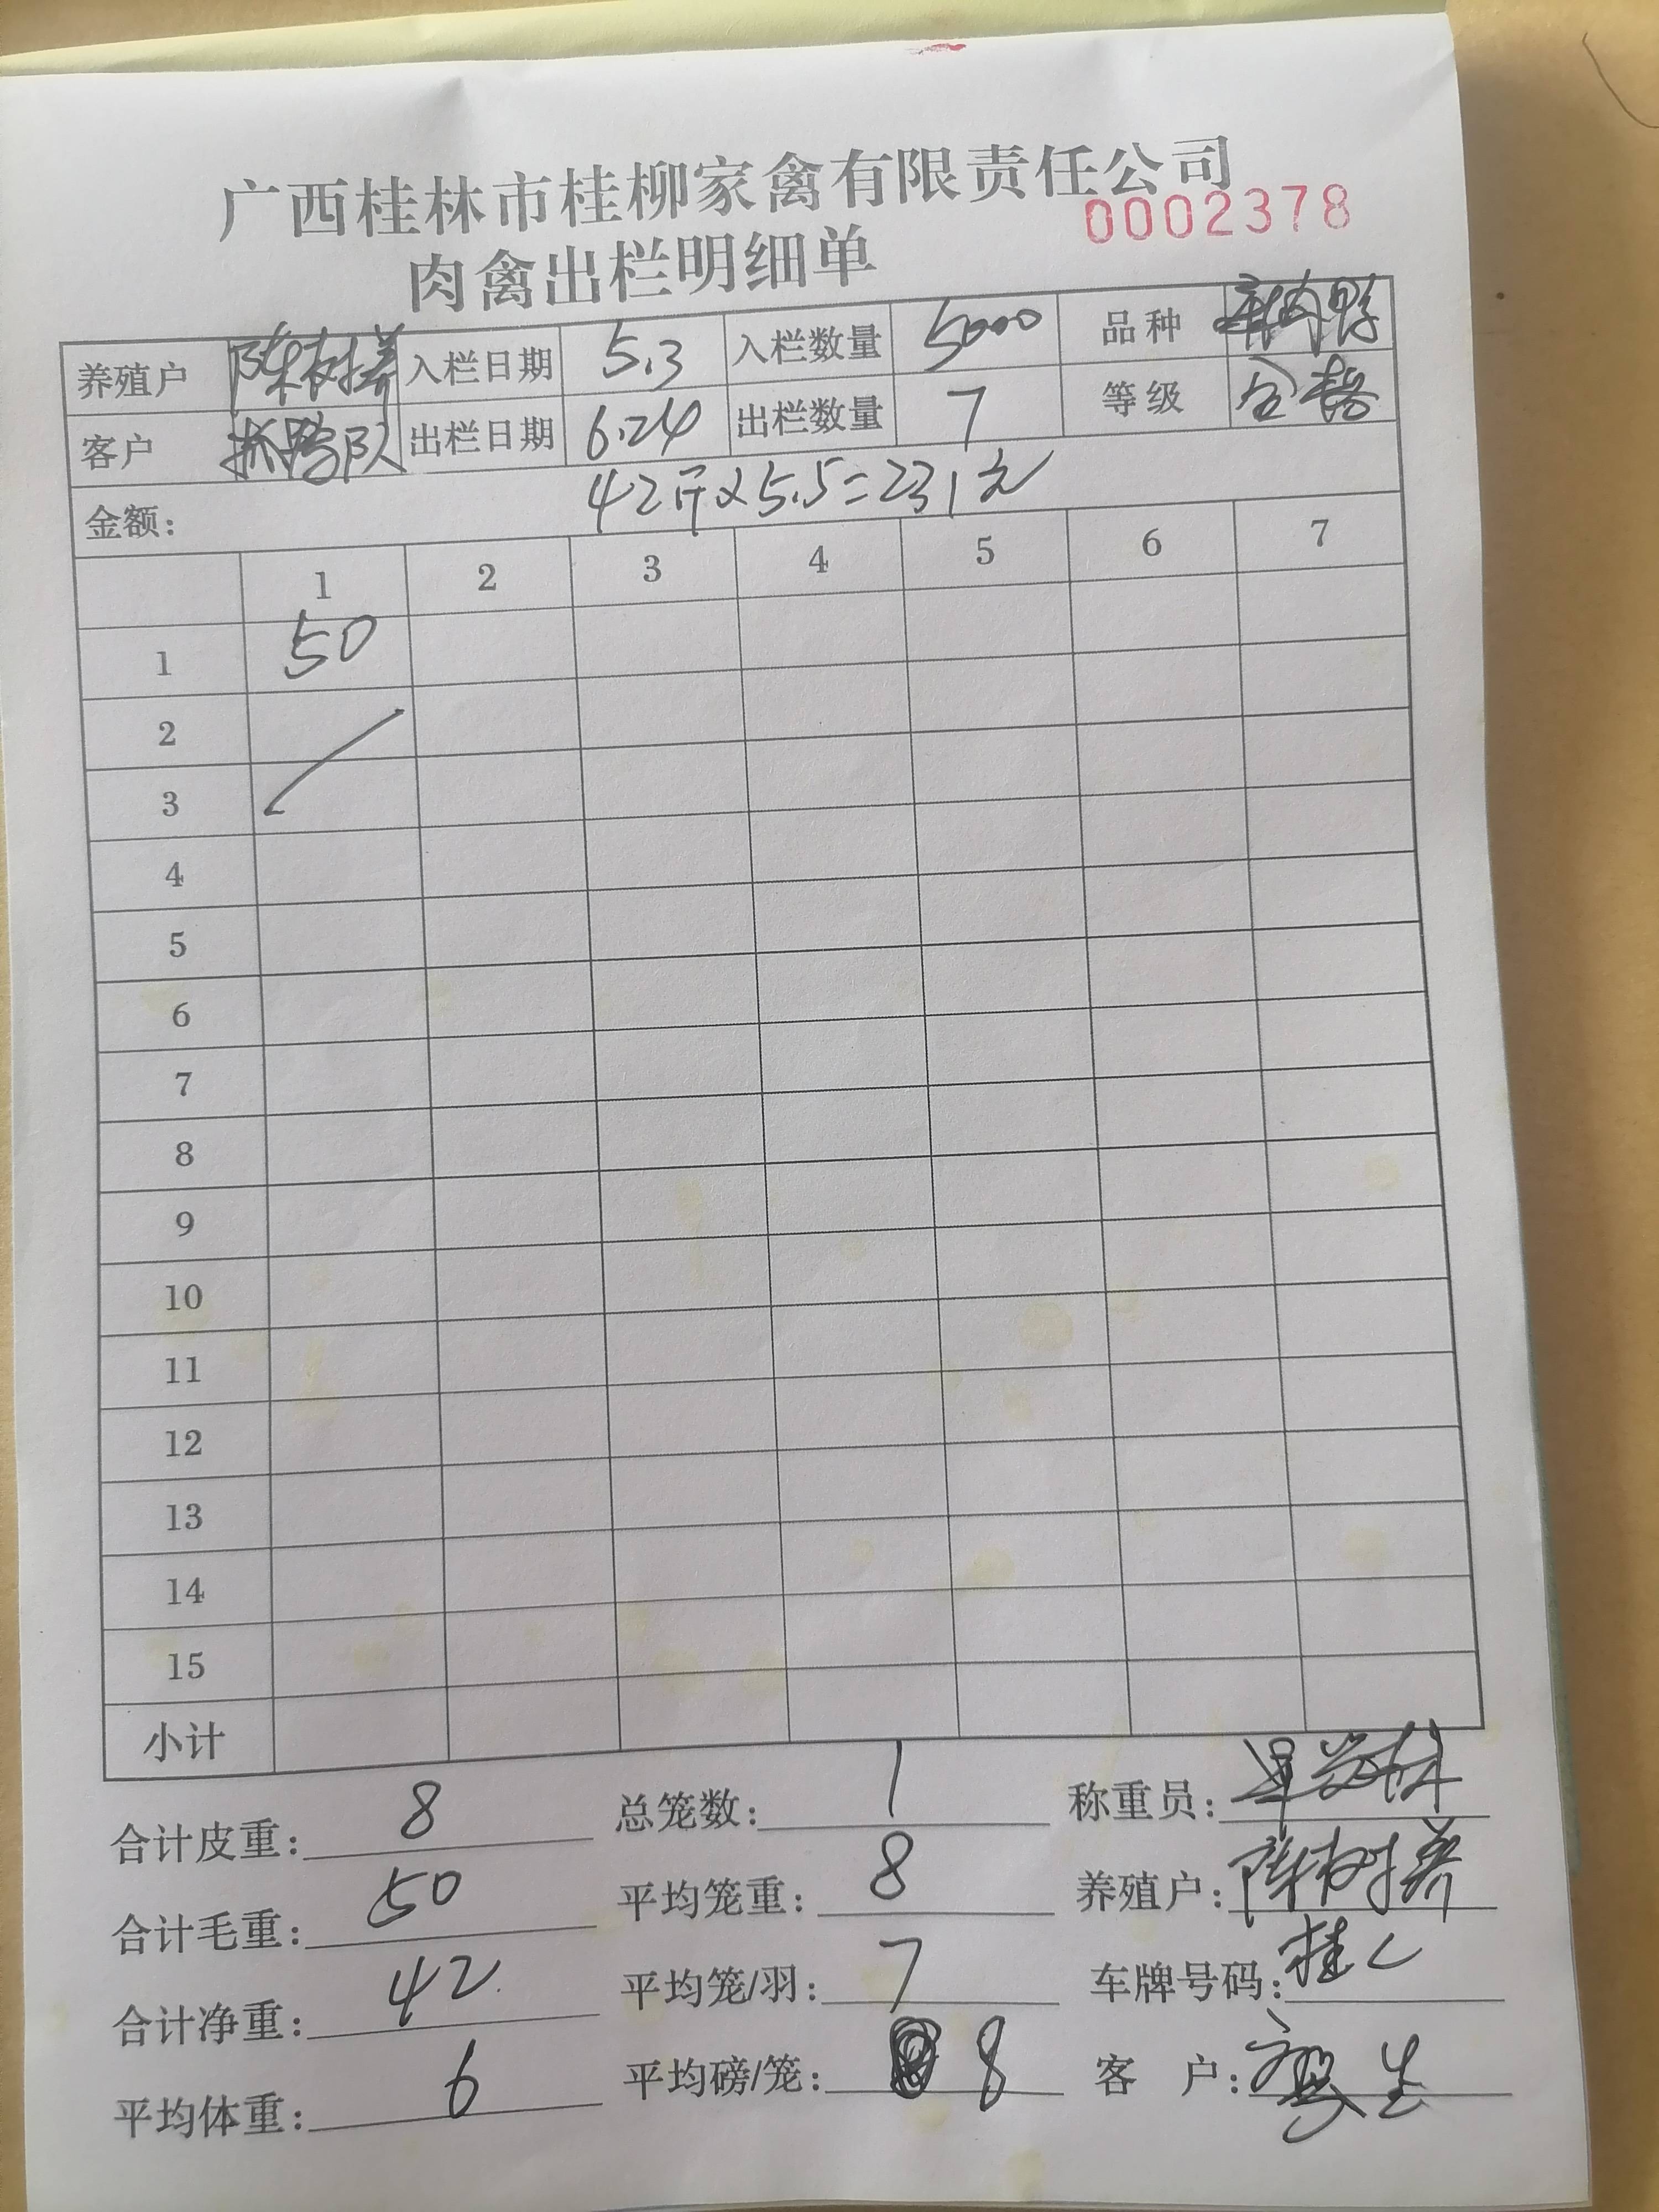 广西桂林市桂柳家禽有限责任公司
0002378
肉禽出栏明细单
养殖户 陈树养 入栏日期 5.3 入栏数量 5000 品种 鸭
客户 抓鸭队 出栏日期 6.24 出栏数量 7 等级 合格
金额: 42斤×5.5=231元
1 2 3 4 5 6 7
1 50
2
3
4
5
6
7
8
9
10
11
12
13
14
15
小计
合计皮重: 8 总笼数: 1 称重员:
合计毛重: 50 平均笼重: 8 养殖户: 陈树养
合计净重: 42 平均笼/羽: 7 车牌号码: 桂C
平均体重: 6 平均磅/笼: 8 客 户: 生